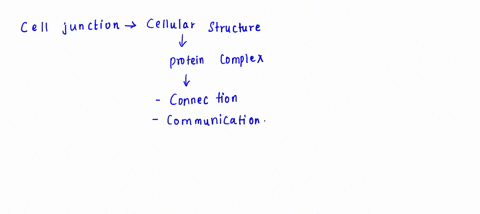 Cell junction → Cellular Structure
↓
protein Complex
↓
- Connection
- Communication.